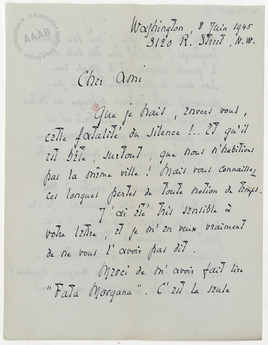 Washington, 8 Juin 1945
3120 R. Street, N.W.
AAAB
Cher ami
Que je hais, envers vous,
cette fatalité du silence !.. Et qu'il
est bête, surtout, que nous n'habitions
pas la même ville ! Mais vous connaissez
ces longues pertes de toute notion de temps.
J'ai été très sensible à
votre lettre, et je m'en veux vraiment
de ne vous l'avoir pas dit.
Merci de m'avoir fait lire
"Fata Morgana". C'est la seule